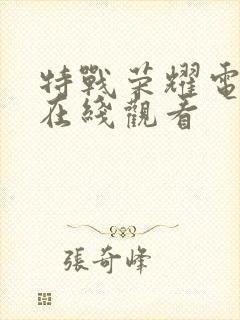 特戰榮耀電
在綫觀看
張奇峰